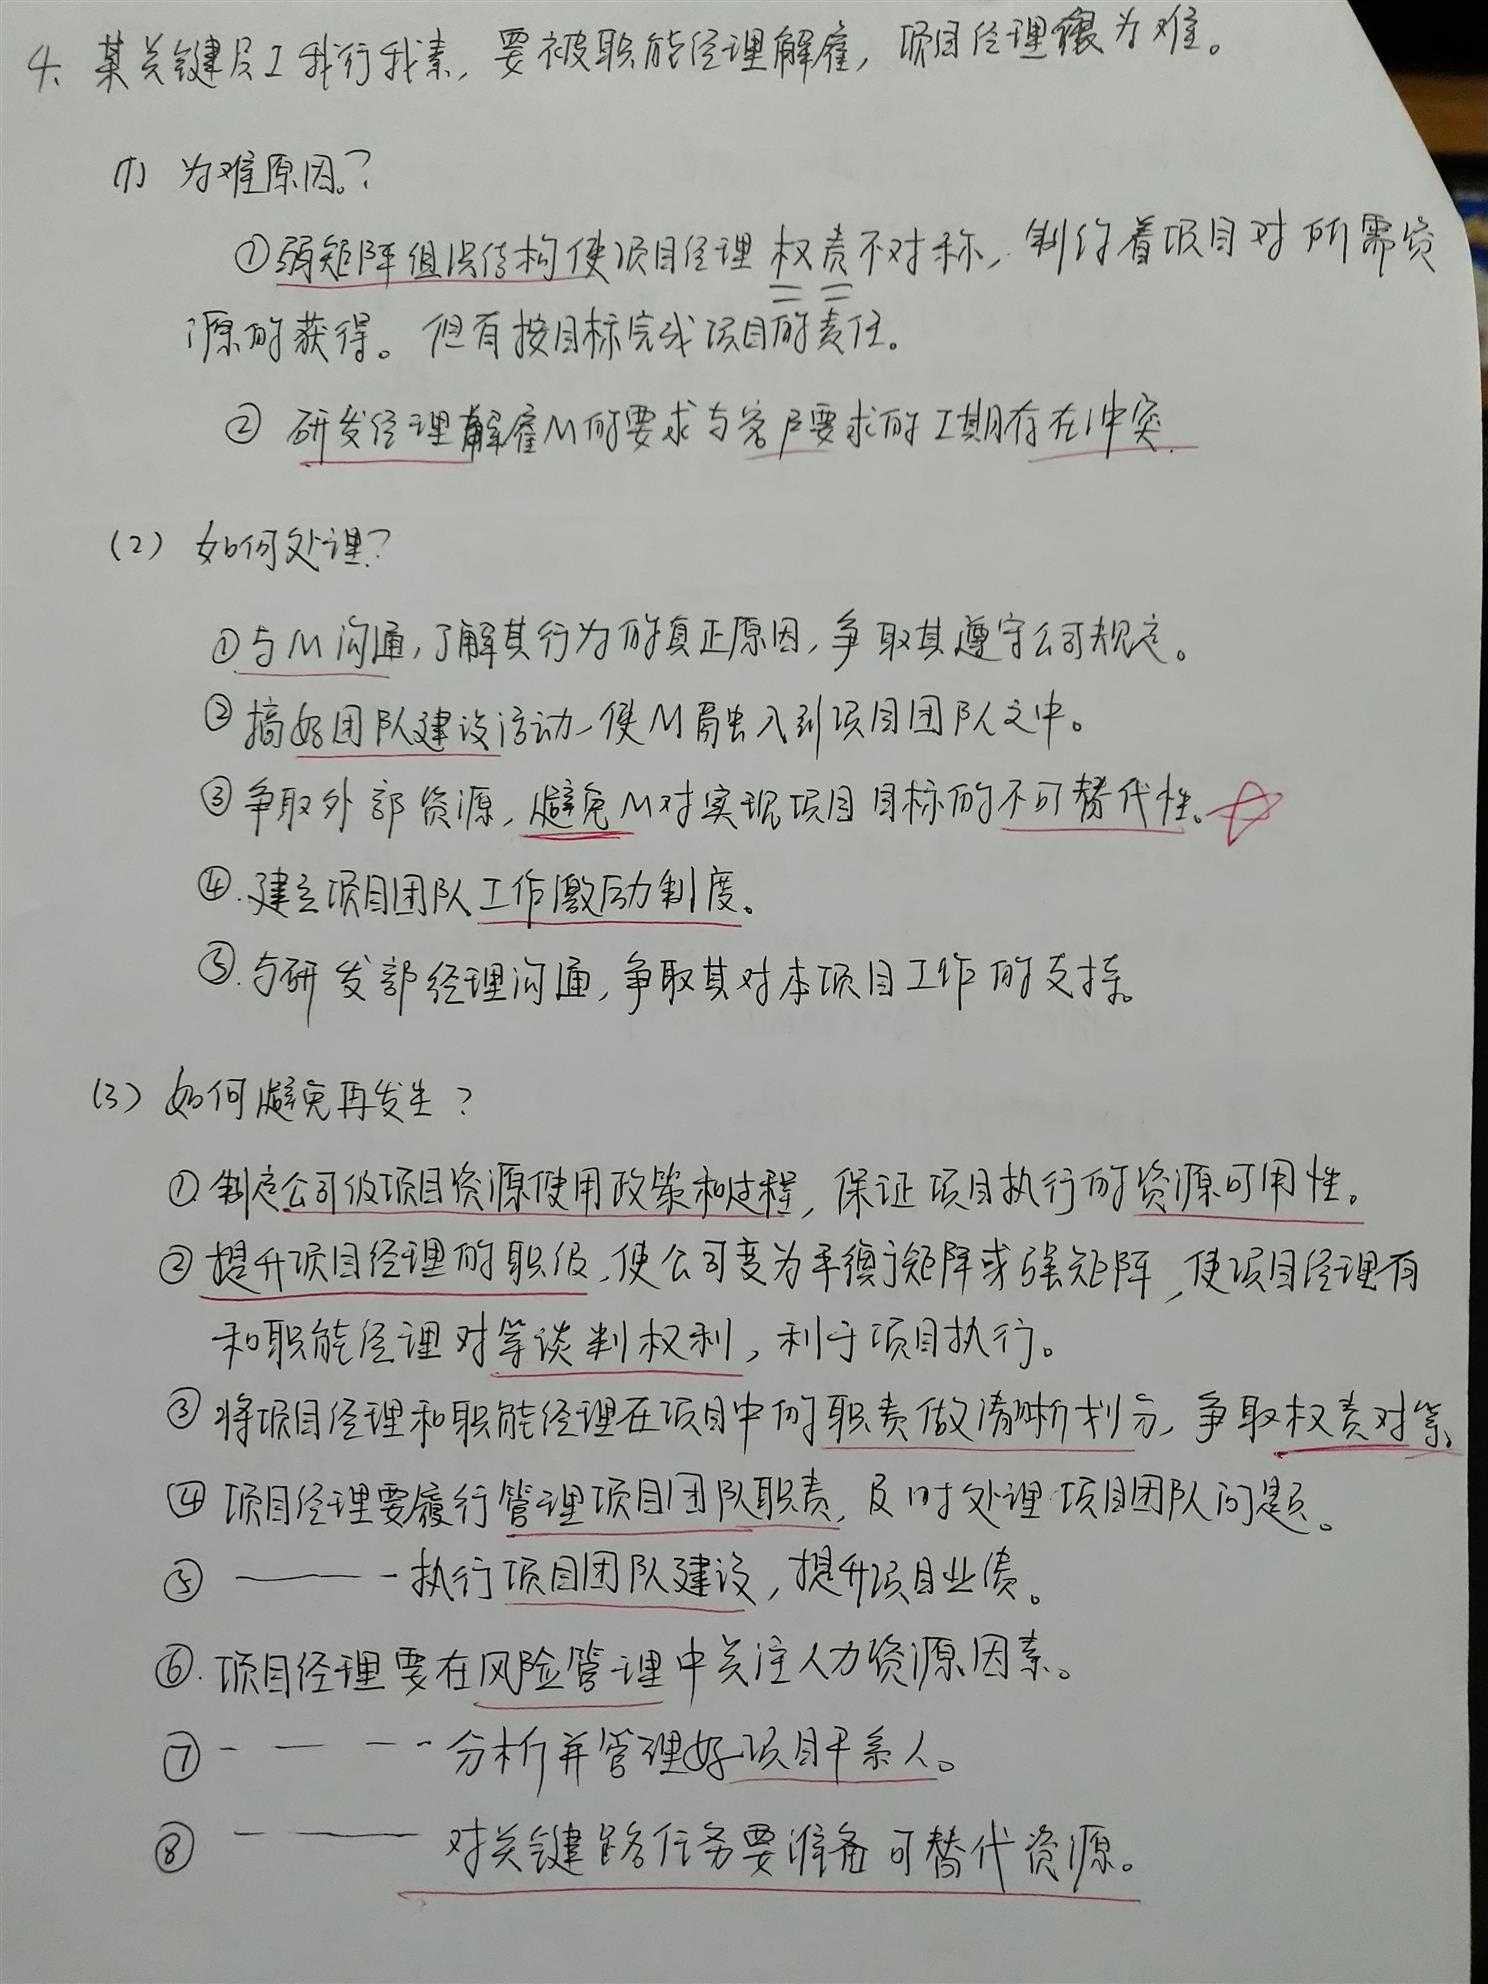 4、某关键员工我行我素，要被职能经理解雇，项目经理很为难。
(1) 为难原因？
①弱矩阵组织结构使项目经理权责不对称，制约着项目对所需资
源的获得。但有按目标完成项目的责任。
② 研发经理解雇M的要求与客户要求的工期存在冲突.
(2) 如何处理？
①与M沟通，了解其行为的真正原因，争取其遵守公司规定。
②搞好团队建设活动，使M融入到项目团队之中。
③争取外部资源，避免M对实现项目目标的不可替代性。☆
④.建立项目团队工作激励制度。
⑤.与研发部经理沟通，争取其对本项目工作的支持。
(3) 如何避免再发生？
①制定公司级项目资源使用政策和过程，保证项目执行的资源可用性。
②提升项目经理的职级，使公司变为平衡矩阵或强矩阵，使项目经理有
和职能经理对等谈判权利，利于项目执行。
③将项目经理和职能经理在项目中的职责做清晰划分，争取权责对等。
④项目经理要履行管理项目团队职责，及时处理项目团队问题。
⑤ ———— 执行项目团队建设，提升项目业绩。
⑥.项目经理要在风险管理中关注人力资源因素。
⑦ - — - - 分析并管理好项目干系人。
⑧ - ——— 对关键路任务要准备可替代资源。